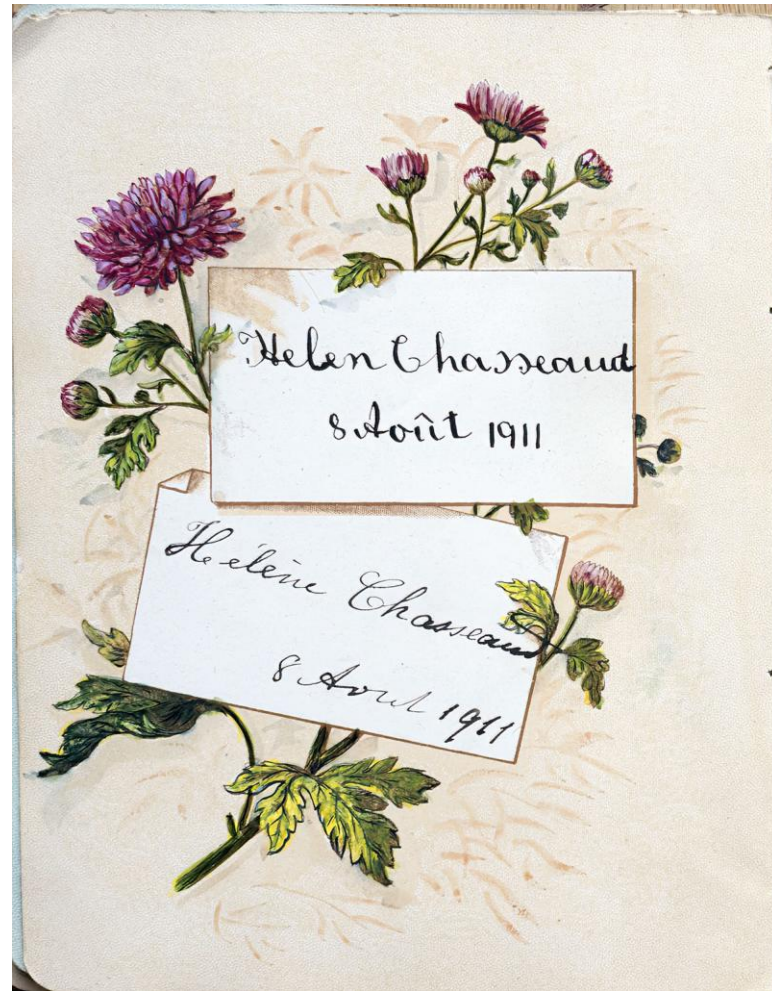 Helen Chasseaud
8 Août 1911
Hélène Chasseaud
8 Aout 1911